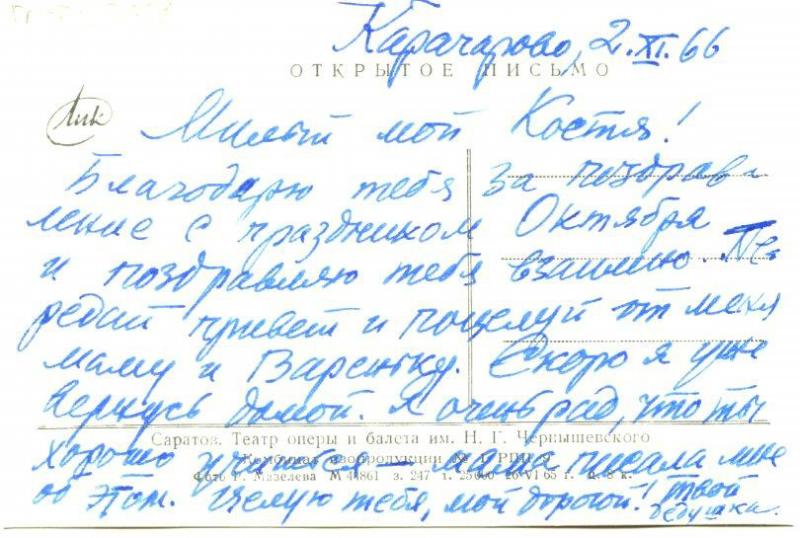 Карачарово, 2.XI.66
ОТКРЫТОЕ ПИСЬМО
Милый мой Костя!
Благодарю тебя за поздрав-
ление с праздником Октября
и поздравляю тебя взаимно. Пе-
редай привет и поцелуй от меня
маму и Вареньку. Скоро я уже
вернусь домой. Я очень рад, что ты
Саратов. Театр оперы и балета им. Н. Г. Чернышевского
хорошо учишься — мама писала мне
Комбинат изопродукции № 1 РПП
Фото Г. Мазелева М 40861 з. 247 т. 25000 26 VI 65 г. ц. 3 к.
об этом. Целую тебя, мой дорогой! Твой
дедушка.